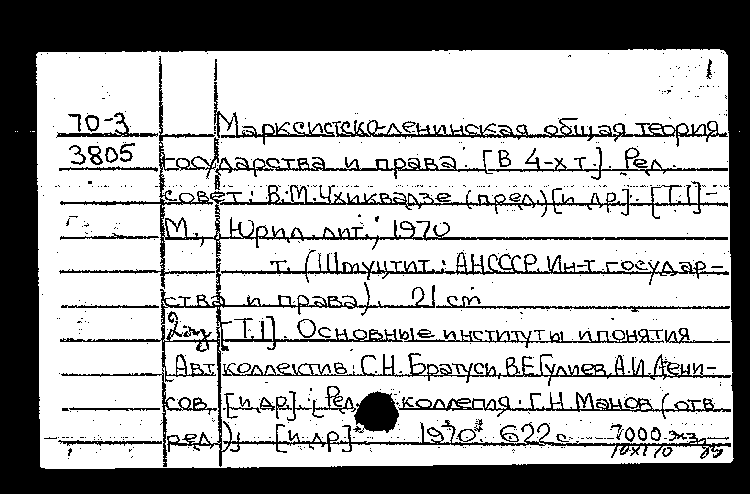 1
70-3 Марксистско-ленинская общая теория
3805 государства и права. [В 4-х т.]. Ред.
совет: В.М. Чхиквадзе (пред.) [и др.]. [Т.1]-
М., Юрид. лит., 1970
т. (Штуцтит.: АНСССР. Ин-т государ-
ства и права). 21 cm
[Т.1]. Основные институты и понятия
[Авт коллектив: С.Н. Братуси, В.Е Гулиев, А.И. Дени-
сов, [и др]. [Ред. коллегия: Г.Н. Манов (отв
ред.), [и др]. 1970. 622 с 7000 экз.
70х170 85